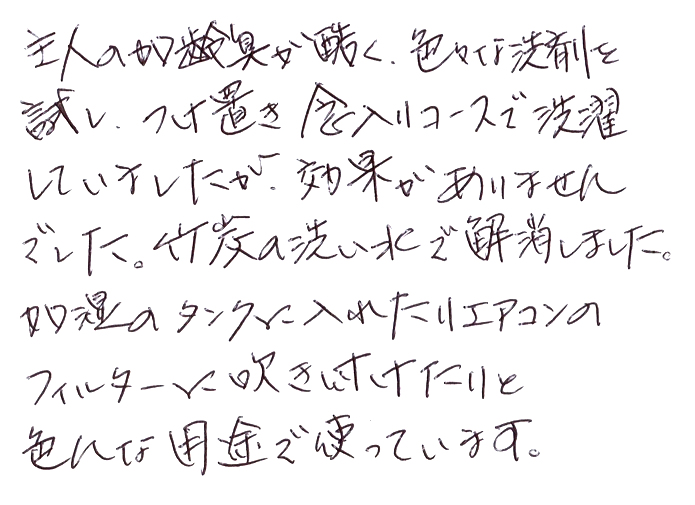 主人の加齢臭が酷く、色々な洗剤を
試し、つけ置き念入りコースで洗濯
していましたが、効果がありません
でした。竹炭の洗い水で解消しました。
加湿のタンクに入れたりエアコンの
フィルターに吹き付けたりと
色んな用途で使っています。